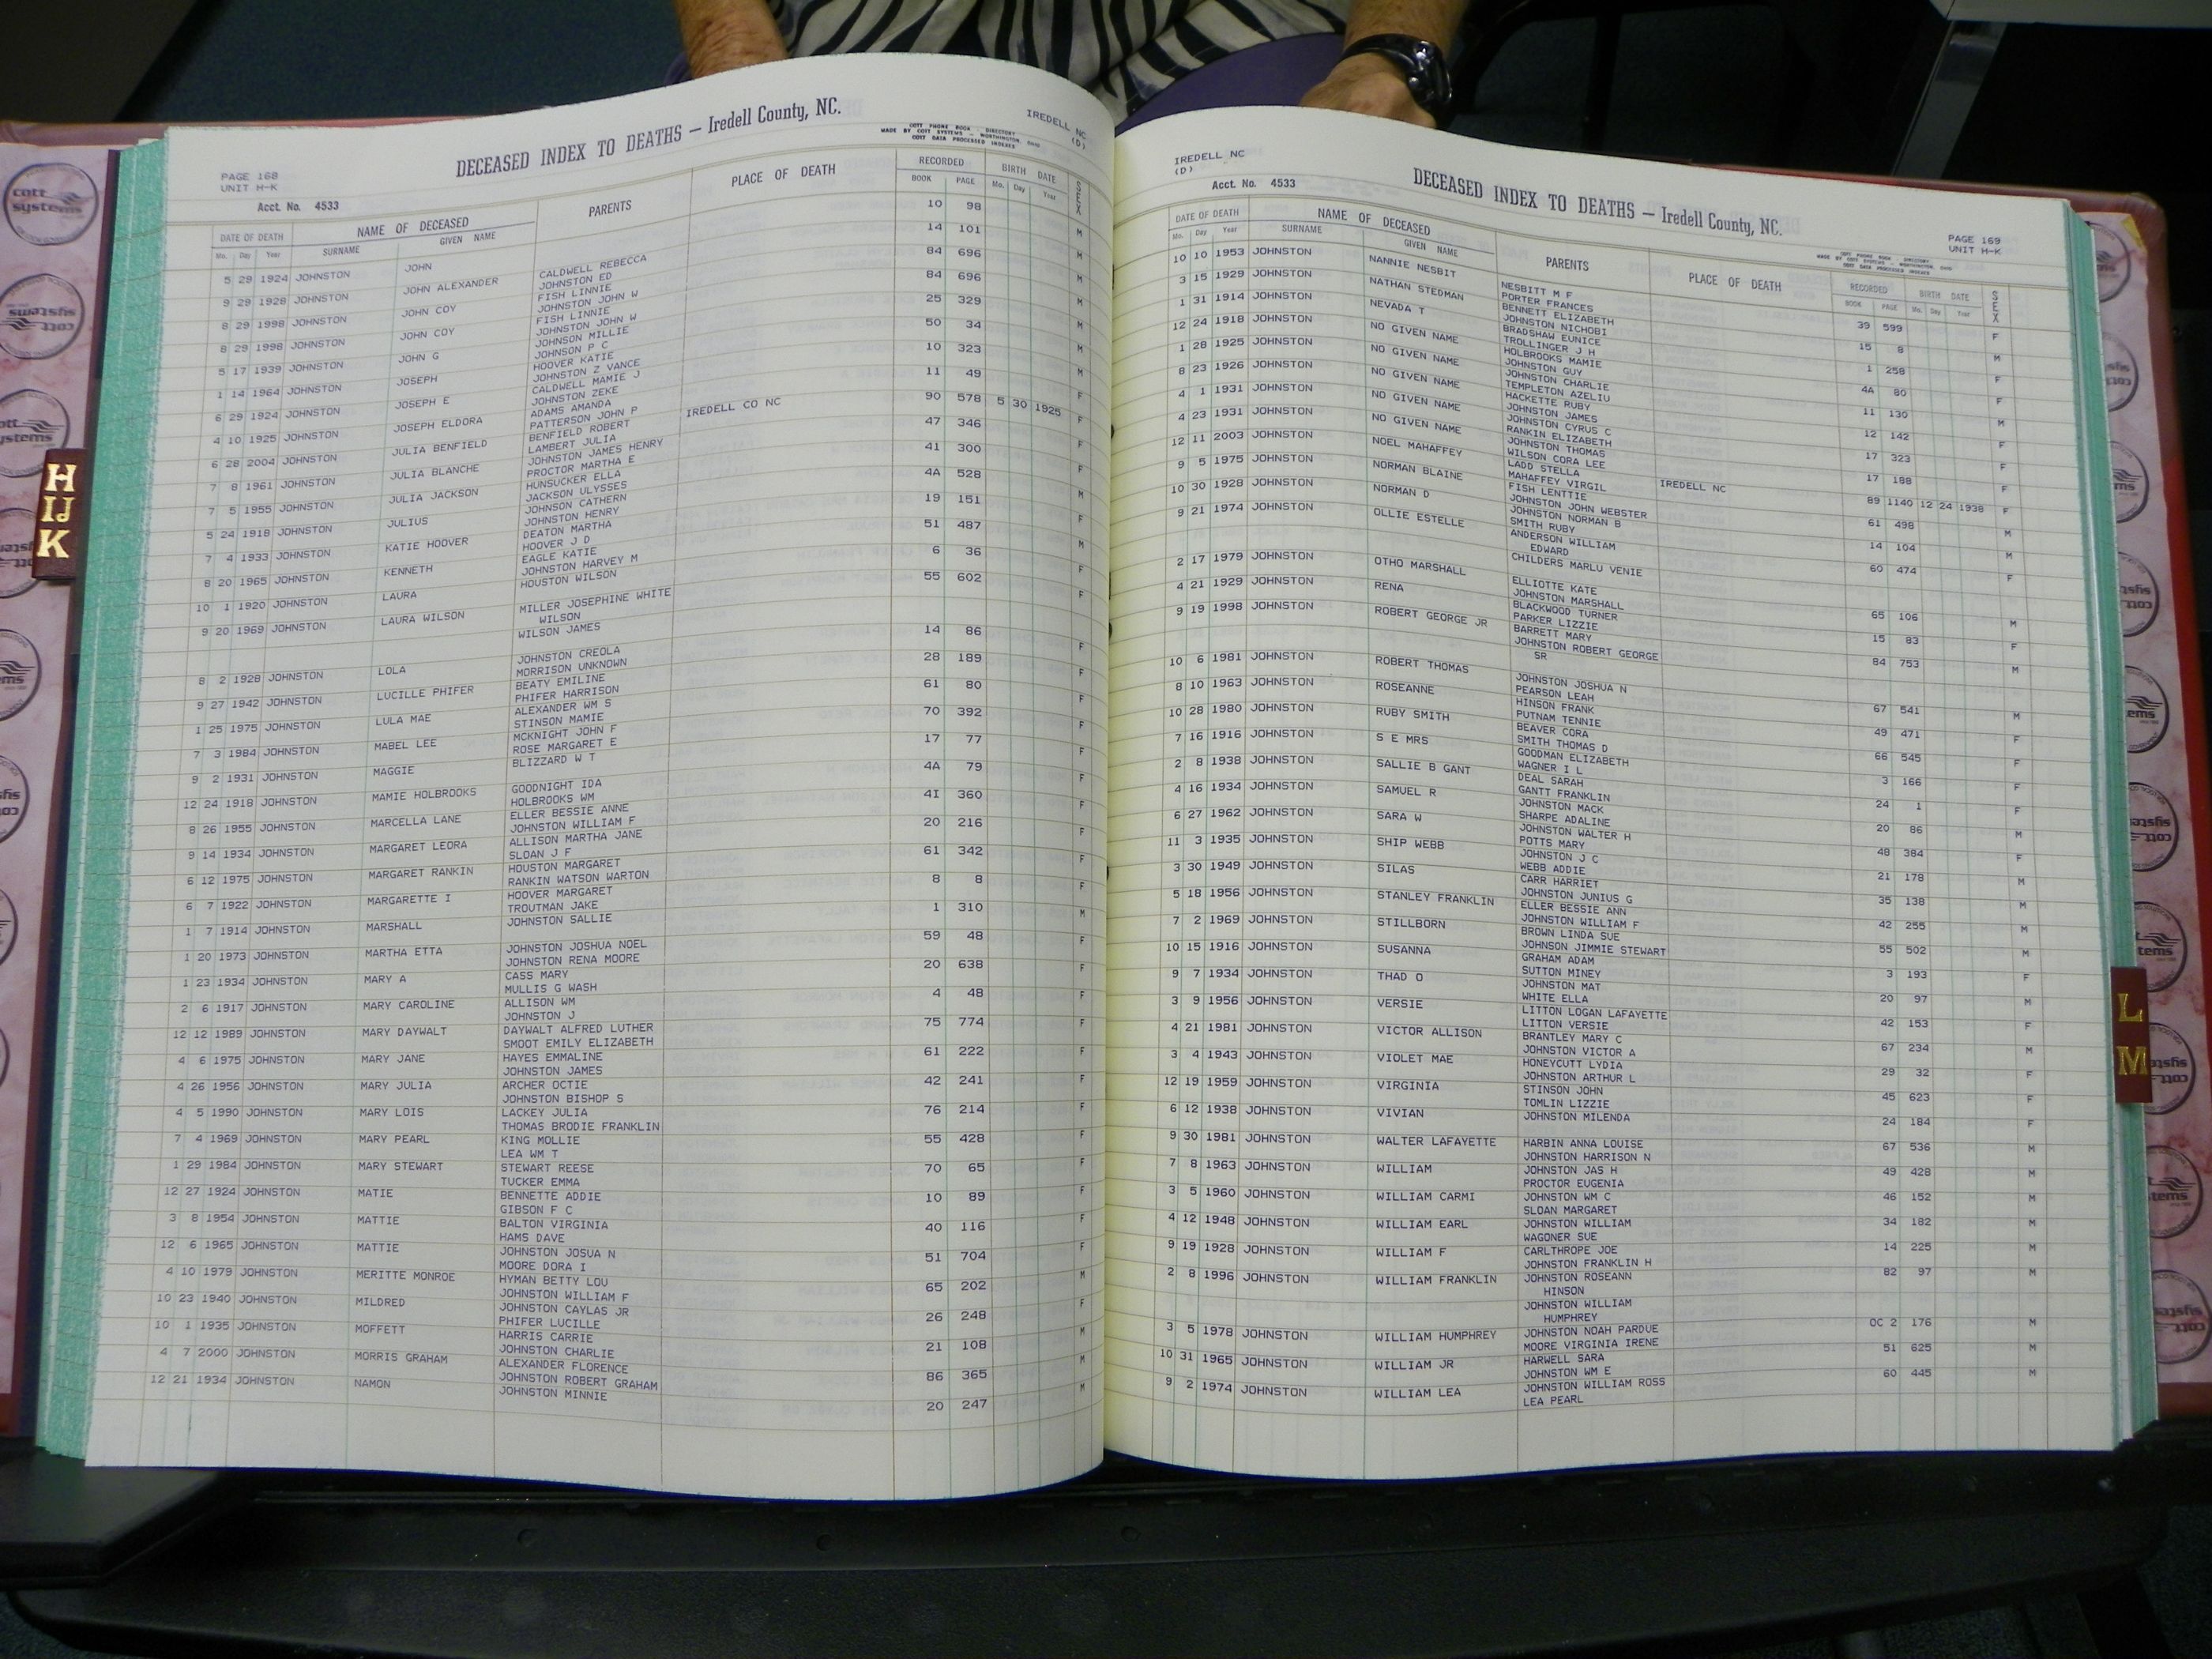 IREDELL NC
(D)
PAGE 168
UNIT H-K
Acct. No. 4533
DECEASED INDEX TO DEATHS — Iredell County, NC.
DATE OF DEATH NAME OF DECEASED PARENTS PLACE OF DEATH RECORDED BIRTH DATE SEX
Mo. Day Year SURNAME GIVEN NAME BOOK PAGE Mo. Day Year
5 29 1924 JOHNSTON JOHN 10 98 M
9 29 1928 JOHNSTON JOHN ALEXANDER CALDWELL REBECCA 14 101 M
JOHNSTON ED
8 29 1998 JOHNSTON JOHN COY FISH LINNIE 84 696 M
JOHNSTON JOHN W
8 29 1998 JOHNSTON JOHN COY FISH LINNIE 84 696 M
JOHNSTON JOHN W
5 17 1939 JOHNSTON JOHN G JOHNSON MILLIE 25 329 M
JOHNSON P C
1 14 1964 JOHNSTON JOSEPH HOOVER KATIE 50 34 M
JOHNSTON Z VANCE
6 29 1924 JOHNSTON JOSEPH E CALDWELL MAMIE J 10 323 M
JOHNSTON ZEKE
4 10 1925 JOHNSTON JOSEPH ELDORA ADAMS AMANDA 11 49 F
PATTERSON JOHN P
6 28 2004 JOHNSTON JULIA BENFIELD BENFIELD ROBERT IREDELL CO NC 90 578 5 30 1925 F
LAMBERT JULIA
7 8 1961 JOHNSTON JULIA BLANCHE JOHNSTON JAMES HENRY 47 346 F
PROCTOR MARTHA E
7 5 1955 JOHNSTON JULIA JACKSON HUNSUCKER ELLA 41 300 F
JACKSON ULYSSES
5 24 1918 JOHNSTON JULIUS JOHNSON CATHERN 4A 528 M
JOHNSTON HENRY
7 4 1933 JOHNSTON KATIE HOOVER DEATON MARTHA 19 151 F
HOOVER J D
8 20 1965 JOHNSTON KENNETH EAGLE KATIE 51 487 M
JOHNSTON HARVEY M
10 1 1920 JOHNSTON LAURA HOUSTON WILSON 6 36
9 20 1969 JOHNSTON LAURA WILSON MILLER JOSEPHINE WHITE 55 602 F
WILSON
WILSON JAMES
8 2 1928 JOHNSTON LOLA JOHNSTON CREOLA 14 86 F
MORRISON UNKNOWN
9 27 1942 JOHNSTON LUCILLE PHIFER BEATY EMILINE 28 189 F
PHIFER HARRISON
1 25 1975 JOHNSTON LULA MAE ALEXANDER WM S 61 80 F
STINSON MAMIE
7 3 1984 JOHNSTON MABEL LEE MCKNIGHT JOHN F 70 392 F
ROSE MARGARET E
9 2 1931 JOHNSTON MAGGIE BLIZZARD W T 17 77 F
12 24 1918 JOHNSTON MAMIE HOLBROOKS GOODNIGHT IDA 4A 79 F
HOLBROOKS WM
8 26 1955 JOHNSTON MARCELLA LANE ELLER BESSIE ANNE 41 360 F
JOHNSTON WILLIAM F
9 14 1934 JOHNSTON MARGARET LEORA ALLISON MARTHA JANE 20 216 F
SLOAN J F
6 12 1975 JOHNSTON MARGARET RANKIN HOUSTON MARGARET 61 342 F
RANKIN WATSON WARTON
6 7 1922 JOHNSTON MARGARETTE I HOOVER MARGARET 8 8 F
TROUTMAN JAKE
1 7 1914 JOHNSTON MARSHALL JOHNSTON SALLIE 1 310 M
1 20 1973 JOHNSTON MARTHA ETTA JOHNSTON JOSHUA NOEL 59 48 F
JOHNSTON RENA MOORE
1 23 1934 JOHNSTON MARY A CASS MARY 20 638 F
MULLIS G WASH
2 6 1917 JOHNSTON MARY CAROLINE ALLISON WM 4 48 F
JOHNSTON J
12 12 1989 JOHNSTON MARY DAYWALT DAYWALT ALFRED LUTHER 75 774 F
SMOOT EMILY ELIZABETH
4 6 1975 JOHNSTON MARY JANE HAYES EMMALINE 61 222 F
JOHNSTON JAMES
4 26 1956 JOHNSTON MARY JULIA ARCHER OCTIE 42 241 F
JOHNSTON BISHOP S
4 5 1990 JOHNSTON MARY LOIS LACKEY JULIA 76 214 F
THOMAS BRODIE FRANKLIN
7 4 1969 JOHNSTON MARY PEARL KING MOLLIE 55 428 F
LEA WM T
1 29 1984 JOHNSTON MARY STEWART STEWART REESE 70 65 F
TUCKER EMMA
12 27 1924 JOHNSTON MATIE BENNETTE ADDIE 10 89 F
GIBSON F C
3 8 1954 JOHNSTON MATTIE BALTON VIRGINIA 40 116 F
HAMS DAVE
12 6 1965 JOHNSTON MATTIE JOHNSTON JOSUA N 51 704 F
MOORE DORA I
4 10 1979 JOHNSTON MERITTE MONROE HYMAN BETTY LOU 65 202 M
JOHNSTON WILLIAM F
10 23 1940 JOHNSTON MILDRED JOHNSTON CAYLAS JR 26 248 F
PHIFER LUCILLE
10 1 1935 JOHNSTON MOFFETT HARRIS CARRIE 21 108 M
JOHNSTON CHARLIE
4 7 2000 JOHNSTON MORRIS GRAHAM ALEXANDER FLORENCE 86 365 M
JOHNSTON ROBERT GRAHAM
12 21 1934 JOHNSTON NAMON JOHNSTON MINNIE 20 247 M
IREDELL NC
(D)
Acct. No. 4533
DECEASED INDEX TO DEATHS — Iredell County, NC.
PAGE 169
UNIT H-K
DATE OF DEATH NAME OF DECEASED PARENTS PLACE OF DEATH RECORDED BIRTH DATE SEX
Mo. Day Year SURNAME GIVEN NAME BOOK PAGE Mo. Day Year
10 10 1953 JOHNSTON NANNIE NESBIT NESBITT M F 39 599 F
PORTER FRANCES
3 15 1929 JOHNSTON NATHAN STEDMAN BENNETT ELIZABETH 15 8 M
JOHNSTON NICHOBI
1 31 1914 JOHNSTON NEVADA T BRADSHAW EUNICE 1 258 F
TROLLINGER J H
12 24 1918 JOHNSTON NO GIVEN NAME HOLBROOKS MAMIE 4A 80 F
JOHNSTON GUY
1 28 1925 JOHNSTON NO GIVEN NAME JOHNSTON CHARLIE 11 130 M
TEMPLETON AZELIU
8 23 1926 JOHNSTON NO GIVEN NAME HACKETTE RUBY 12 142 F
JOHNSTON JAMES
4 1 1931 JOHNSTON NO GIVEN NAME JOHNSTON CYRUS C 17 323 F
RANKIN ELIZABETH
4 23 1931 JOHNSTON NO GIVEN NAME JOHNSTON THOMAS 17 188 F
WILSON CORA LEE
12 11 2003 JOHNSTON NOEL MAHAFFEY LADD STELLA IREDELL NC 89 1140 12 24 1938 F
MAHAFFEY VIRGIL
9 5 1975 JOHNSTON NORMAN BLAINE FISH LENTTIE 61 498 M
JOHNSTON JOHN WEBSTER
10 30 1928 JOHNSTON NORMAN D JOHNSTON NORMAN B 14 104 M
SMITH RUBY
9 21 1974 JOHNSTON OLLIE ESTELLE ANDERSON WILLIAM 60 474 F
EDWARD
CHILDERS MARLU VENIE
2 17 1979 JOHNSTON OTHO MARSHALL ELLIOTTE KATE 65 106 M
JOHNSTON MARSHALL
4 21 1929 JOHNSTON RENA BLACKWOOD TURNER 15 83 F
PARKER LIZZIE
9 19 1998 JOHNSTON ROBERT GEORGE JR BARRETT MARY 84 753 M
JOHNSTON ROBERT GEORGE
SR
10 6 1981 JOHNSTON ROBERT THOMAS JOHNSTON JOSHUA N 67 541 M
PEARSON LEAH
8 10 1963 JOHNSTON ROSEANNE HINSON FRANK 49 471 F
PUTNAM TENNIE
10 28 1980 JOHNSTON RUBY SMITH BEAVER CORA 66 545 F
SMITH THOMAS D
7 16 1916 JOHNSTON S E MRS GOODMAN ELIZABETH 3 166 F
WAGNER I L
2 8 1938 JOHNSTON SALLIE B GANT DEAL SARAH 24 1 F
GANTT FRANKLIN
4 16 1934 JOHNSTON SAMUEL R JOHNSTON MACK 20 86 M
SHARPE ADALINE
6 27 1962 JOHNSTON SARA W JOHNSTON WALTER H 48 384 F
POTTS MARY
11 3 1935 JOHNSTON SHIP WEBB JOHNSTON J C 21 178 M
WEBB ADDIE
3 30 1949 JOHNSTON SILAS CARR HARRIET 35 138 M
JOHNSTON JUNIUS G
5 18 1956 JOHNSTON STANLEY FRANKLIN ELLER BESSIE ANN 42 255 M
JOHNSTON WILLIAM F
7 2 1969 JOHNSTON STILLBORN BROWN LINDA SUE 55 502 M
JOHNSON JIMMIE STEWART
10 15 1916 JOHNSTON SUSANNA GRAHAM ADAM 3 193 F
SUTTON MINEY
9 7 1934 JOHNSTON THAD O JOHNSTON MAT 20 97 M
WHITE ELLA
3 9 1956 JOHNSTON VERSIE LITTON LOGAN LAFAYETTE 42 153 F
LITTON VERSIE
4 21 1981 JOHNSTON VICTOR ALLISON BRANTLEY MARY C 67 234 M
JOHNSTON VICTOR A
3 4 1943 JOHNSTON VIOLET MAE HONEYCUTT LYDIA 29 32 F
JOHNSTON ARTHUR L
12 19 1959 JOHNSTON VIRGINIA STINSON JOHN 45 623 F
TOMLIN LIZZIE
6 12 1938 JOHNSTON VIVIAN JOHNSTON MILENDA 24 184 F
9 30 1981 JOHNSTON WALTER LAFAYETTE HARBIN ANNA LOUISE 67 536 M
JOHNSTON HARRISON N
7 8 1963 JOHNSTON WILLIAM JOHNSTON JAS H 49 428 M
PROCTOR EUGENIA
3 5 1960 JOHNSTON WILLIAM CARMI JOHNSTON WM C 46 152 M
SLOAN MARGARET
4 12 1948 JOHNSTON WILLIAM EARL JOHNSTON WILLIAM 34 182 M
WAGONER SUE
9 19 1928 JOHNSTON WILLIAM F CARLTHROPE JOE 14 225 M
JOHNSTON FRANKLIN H
2 8 1996 JOHNSTON WILLIAM FRANKLIN JOHNSTON ROSEANN 82 97 M
HINSON
JOHNSTON WILLIAM
HUMPHREY
3 5 1978 JOHNSTON WILLIAM HUMPHREY JOHNSTON NOAH PARDUE OC 2 176 M
MOORE VIRGINIA IRENE
10 31 1965 JOHNSTON WILLIAM JR HARWELL SARA 51 625 M
JOHNSTON WM E
9 2 1974 JOHNSTON WILLIAM LEA JOHNSTON WILLIAM ROSS 60 445 M
LEA PEARL
H
IJ
K
L
M
cott
systems